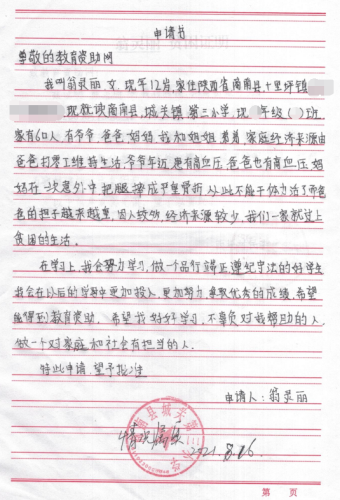 申请书
尊敬的教育资助网
我叫翁灵丽 女,现年12岁,家住陕西省商南县十里坪镇
现就读商南县,城关镇第三小学,现 年级( )班
家有6口人,有爷爷,爸爸,妈妈,我和姐姐,弟弟,家庭经济来源由
爸爸打零工维持生活,爷爷年近 患有高血压,爸爸也有高血压,妈
妈在一次意外中把腿摔成严重骨折,从此不能干体力活了而爸
爸的担子越来越重,因人较多,经济来源较少,我们一家就过上
贫困的生活。
在学习上,我会努力学习,做一个品行端正遵纪守法的好学生
我会在以后的学习中更加投入,更加努力,拿取优秀的成绩,希望
能得到教育资助,希望我好好学习,不辜负对我帮助的人,
做一个对家庭和社会有担当的人。
特此申请 望予批准
申请人:翁灵丽
情况属实
2021.8.26
第 页